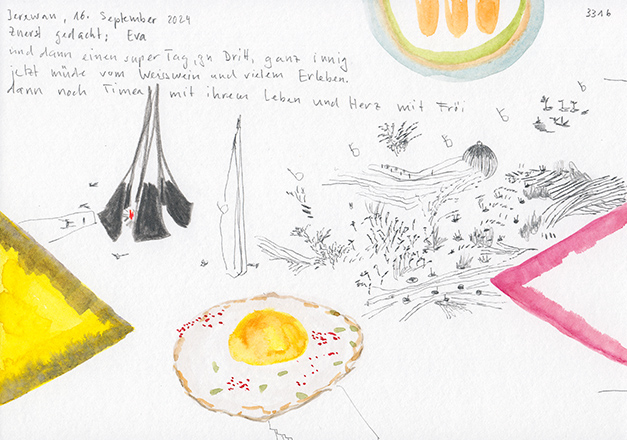 Jerewan, 16. September 2024
3316
Zuerst gedacht; Eva
und dann einen super Tag, zu Dritt, ganz innig
jetzt müde vom Weisswein und vielem Erleben.
dann noch Timea mit ihrem Leben und Herz mit Fröi